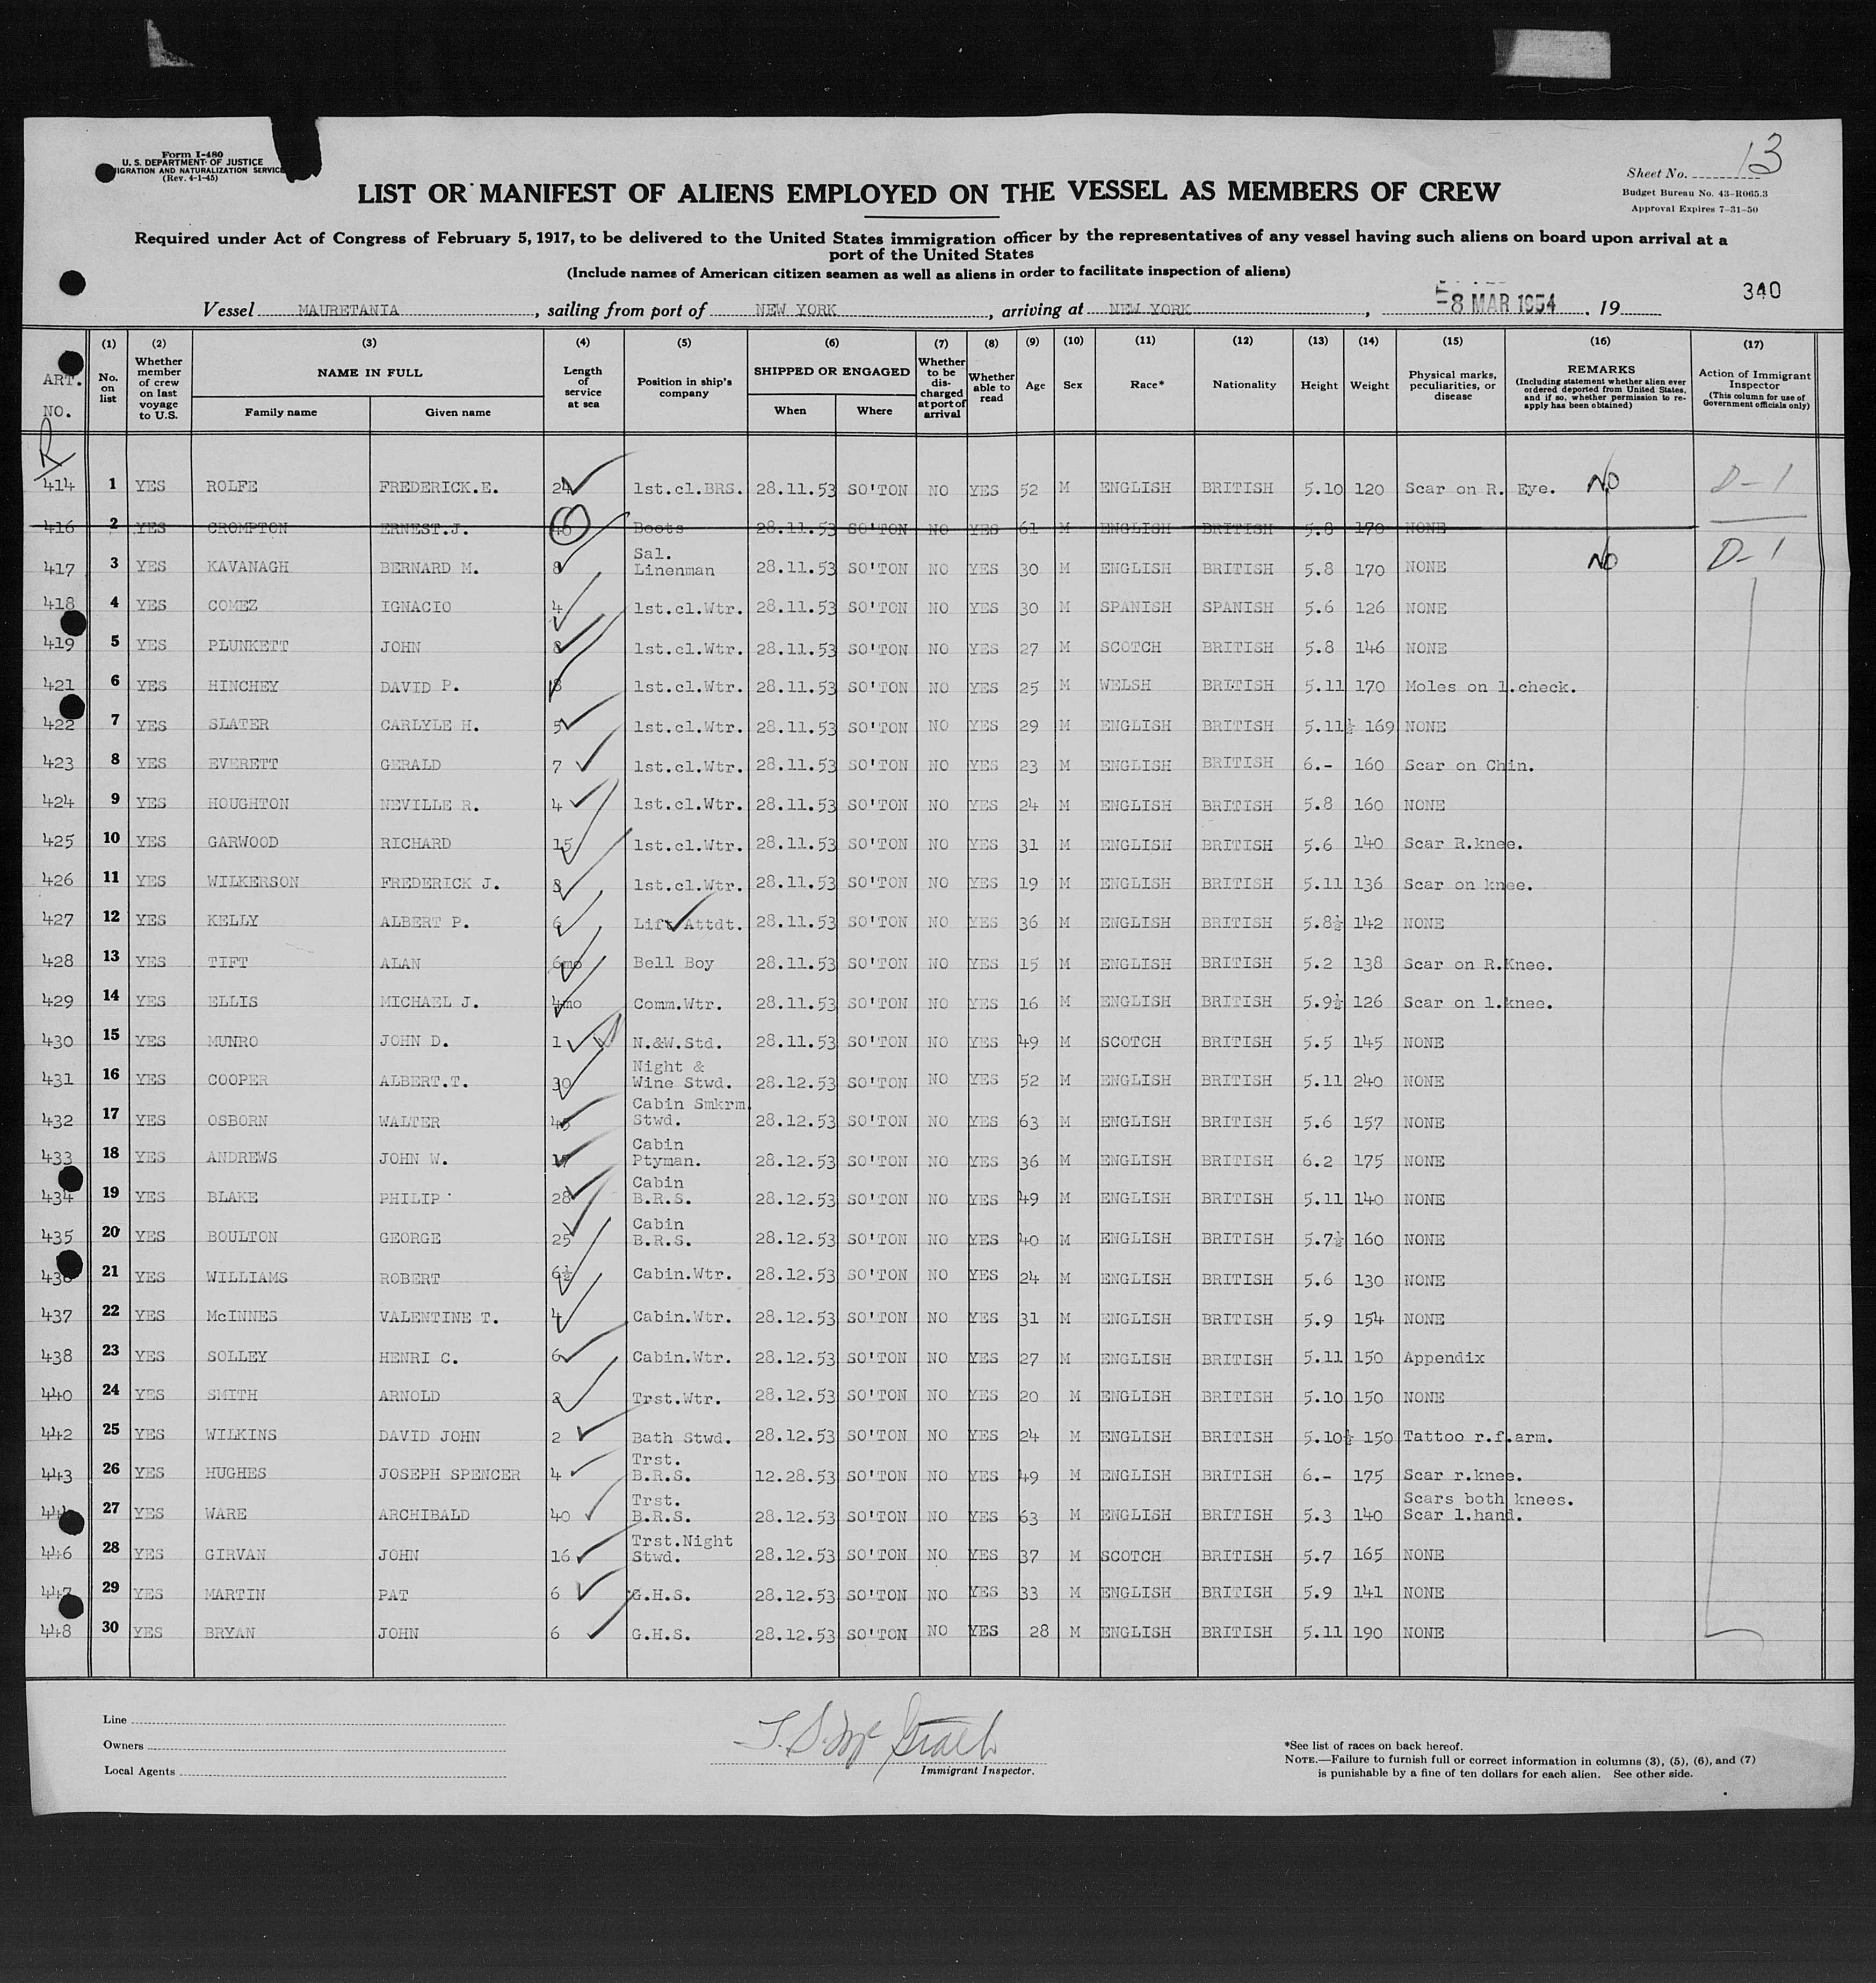 Form I-480
U. S. DEPARTMENT OF JUSTICE
IGRATION AND NATURALIZATION SERVICE
(Rev. 4-1-45)
13
Sheet No.
Budget Bureau No. 43-R065.3
Approval Expires 7-31-50
LIST OR MANIFEST OF ALIENS EMPLOYED ON THE VESSEL AS MEMBERS OF CREW
Required under Act of Congress of February 5, 1917, to be delivered to the United States immigration officer by the representatives of any vessel having such aliens on board upon arrival at a
port of the United States
(Include names of American citizen seamen as well as aliens in order to facilitate inspection of aliens)
340
Vessel MAURETANIA, sailing from port of NEW YORK, arriving at NEW YORK, -8 MAR 1954, 19
ART. NO. (1) No. on list (2) Whether member of crew on last voyage to U.S. (3) NAME IN FULL Family name Given name (4) Length of service at sea (5) Position in ship's company (6) SHIPPED OR ENGAGED When Where (7) Whether to be discharged at port of arrival (8) Whether able to read (9) Age (10) Sex (11) Race* (12) Nationality (13) Height (14) Weight (15) Physical marks, peculiarities, or disease (16) REMARKS (Including statement whether alien ever ordered deported from United States, and if so, whether permission to re-apply has been obtained) (17) Action of Immigrant Inspector (This column for use of Government officials only)
R
414 1 YES ROLFE FREDERICK.E. 24 1st.cl.BRS. 28.11.53 SO'TON NO YES 52 M ENGLISH BRITISH 5.10 120 Scar on R. Eye. No D-1
416 2 YES CROMPTON ERNEST.J. Boots 28.11.53 SO'TON NO YES 61 M ENGLISH BRITISH 5.8 170 NONE
417 3 YES KAVANAGH BERNARD M. 8 Sal. Linenman 28.11.53 SO'TON NO YES 30 M ENGLISH BRITISH 5.8 170 NONE No D-1
418 4 YES COMEZ IGNACIO 4 1st.cl.Wtr. 28.11.53 SO'TON NO YES 30 M SPANISH SPANISH 5.6 126 NONE
419 5 YES PLUNKETT JOHN 1st.cl.Wtr. 28.11.53 SO'TON NO YES 27 M SCOTCH BRITISH 5.8 146 NONE
421 6 YES HINCHEY DAVID P. 8 1st.cl.Wtr. 28.11.53 SO'TON NO YES 25 M WELSH BRITISH 5.11 170 Moles on l.check.
422 7 YES SLATER CARLYLE H. 5 1st.cl.Wtr. 28.11.53 SO'TON NO YES 29 M ENGLISH BRITISH 5.11½ 169 NONE
423 8 YES EVERETT GERALD 7 1st.cl.Wtr. 28.11.53 SO'TON NO YES 23 M ENGLISH BRITISH 6.- 160 Scar on Chin.
424 9 YES HOUGHTON NEVILLE R. 4 1st.cl.Wtr. 28.11.53 SO'TON NO YES 24 M ENGLISH BRITISH 5.8 160 NONE
425 10 YES GARWOOD RICHARD 15 1st.cl.Wtr. 28.11.53 SO'TON NO YES 31 M ENGLISH BRITISH 5.6 140 Scar R.knee.
426 11 YES WILKERSON FREDERICK J. 1st.cl.Wtr. 28.11.53 SO'TON NO YES 19 M ENGLISH BRITISH 5.11 136 Scar on knee.
427 12 YES KELLY ALBERT P. 6 Lift Attdt. 28.11.53 SO'TON NO YES 36 M ENGLISH BRITISH 5.8½ 142 NONE
428 13 YES TIFT ALAN 6mo Bell Boy 28.11.53 SO'TON NO YES 15 M ENGLISH BRITISH 5.2 138 Scar on R.Knee.
429 14 YES ELLIS MICHAEL J. 4mo Comm.Wtr. 28.11.53 SO'TON NO YES 16 M ENGLISH BRITISH 5.9½ 126 Scar on l.knee.
430 15 YES MUNRO JOHN D. 1 N.&W.Std. 28.11.53 SO'TON NO YES 49 M SCOTCH BRITISH 5.5 145 NONE
431 16 YES COOPER ALBERT.T. 30 Night & Wine Stwd. 28.12.53 SO'TON NO YES 52 M ENGLISH BRITISH 5.11 240 NONE
432 17 YES OSBORN WALTER Cabin Smkrm. Stwd. 28.12.53 SO'TON NO YES 63 M ENGLISH BRITISH 5.6 157 NONE
433 18 YES ANDREWS JOHN W. Cabin Ptyman. 28.12.53 SO'TON NO YES 36 M ENGLISH BRITISH 6.2 175 NONE
434 19 YES BLAKE PHILIP 28 Cabin B.R.S. 28.12.53 SO'TON NO YES 49 M ENGLISH BRITISH 5.11 140 NONE
435 20 YES BOULTON GEORGE 25 Cabin B.R.S. 28.12.53 SO'TON NO YES 40 M ENGLISH BRITISH 5.7½ 160 NONE
436 21 YES WILLIAMS ROBERT 6½ Cabin.Wtr. 28.12.53 SO'TON NO YES 24 M ENGLISH BRITISH 5.6 130 NONE
437 22 YES McINNES VALENTINE T. 4 Cabin.Wtr. 28.12.53 SO'TON NO YES 31 M ENGLISH BRITISH 5.9 154 NONE
438 23 YES SOLLEY HENRI C. 6 Cabin.Wtr. 28.12.53 SO'TON NO YES 27 M ENGLISH BRITISH 5.11 150 Appendix
440 24 YES SMITH ARNOLD 2 Trst.Wtr. 28.12.53 SO'TON NO YES 20 M ENGLISH BRITISH 5.10 150 NONE
442 25 YES WILKINS DAVID JOHN 2 Bath Stwd. 28.12.53 SO'TON NO YES 24 M ENGLISH BRITISH 5.10½ 150 Tattoo r.f.arm.
443 26 YES HUGHES JOSEPH SPENCER 4 Trst. B.R.S. 12.28.53 SO'TON NO YES 49 M ENGLISH BRITISH 6.- 175 Scar r.knee.
27 YES WARE ARCHIBALD 40 Trst. B.R.S. 28.12.53 SO'TON NO YES 63 M ENGLISH BRITISH 5.3 140 Scars both knees. Scar l.hand.
446 28 YES GIRVAN JOHN 16 Trst.Night Stwd. 28.12.53 SO'TON NO YES 37 M SCOTCH BRITISH 5.7 165 NONE
447 29 YES MARTIN PAT 6 G.H.S. 28.12.53 SO'TON NO YES 33 M ENGLISH BRITISH 5.9 141 NONE
448 30 YES BRYAN JOHN 6 G.H.S. 28.12.53 SO'TON NO YES 28 M ENGLISH BRITISH 5.11 190 NONE
Line
Owners
Local Agents
Immigrant Inspector.
*See list of races on back hereof.
NOTE.—Failure to furnish full or correct information in columns (3), (5), (6), and (7)
is punishable by a fine of ten dollars for each alien. See other side.